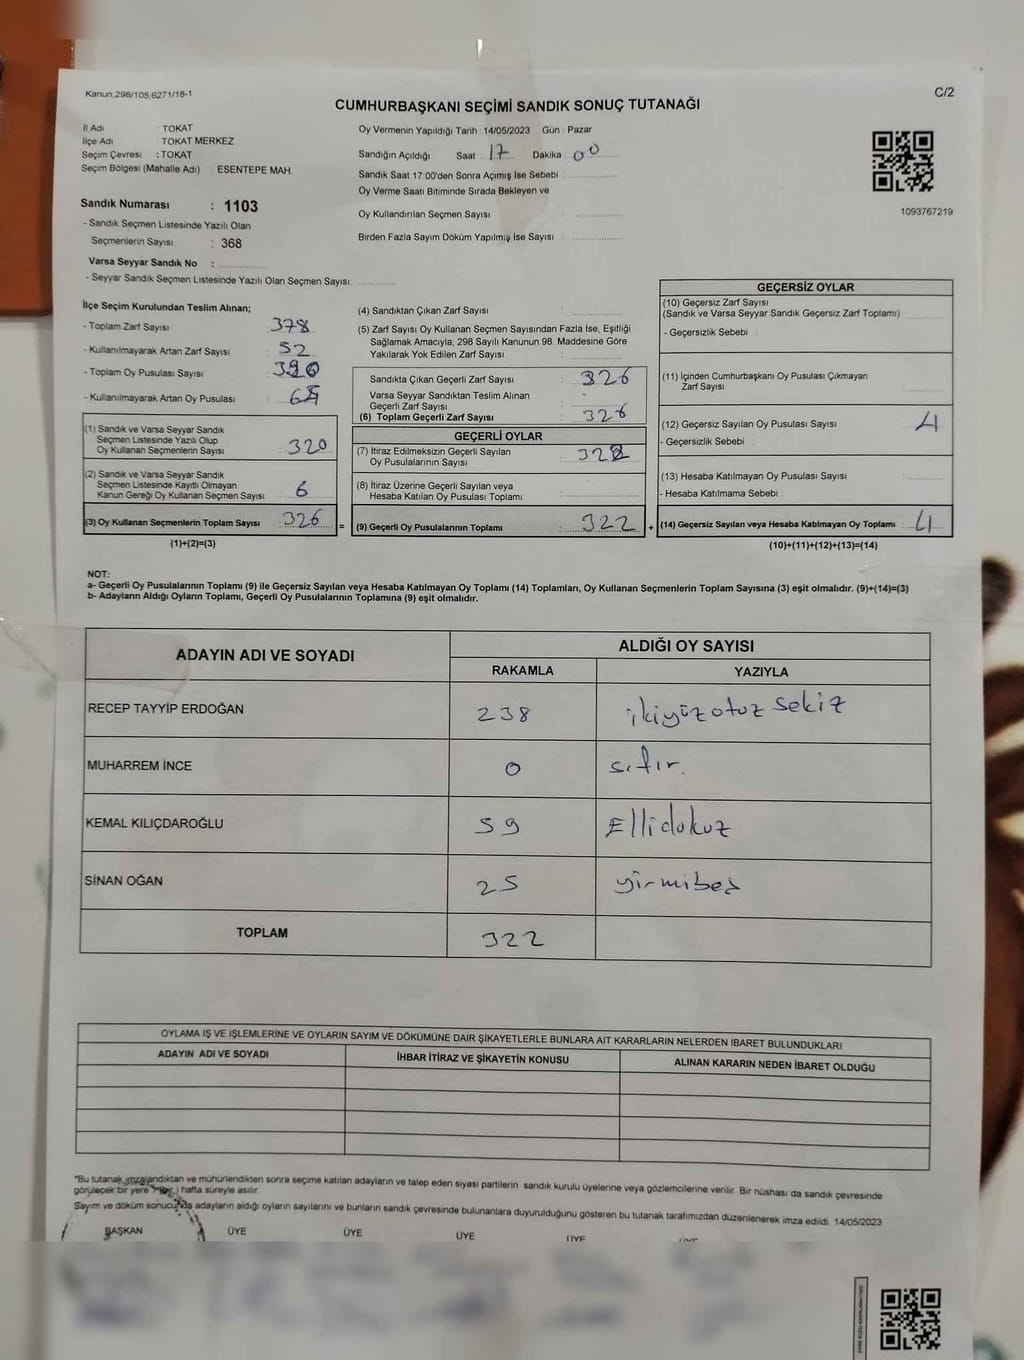 Kanun;298/105,6271/18-1
C/2
CUMHURBAŞKANI SEÇİMİ SANDIK SONUÇ TUTANAĞI
İl Adı : TOKAT
İlçe Adı : TOKAT MERKEZ
Seçim Çevresi : TOKAT
Seçim Bölgesi (Mahalle Adı) : ESENTEPE MAH.
Sandık Numarası : 1103
- Sandık Seçmen Listesinde Yazılı Olan
Seçmenlerin Sayısı : 368
Varsa Seyyar Sandık No :
- Seyyar Sandık Seçmen Listesinde Yazılı Olan Seçmen Sayısı:
Oy Vermenin Yapıldığı Tarih : 14/05/2023 Gün : Pazar
Sandığın Açıldığı Saat : 17 Dakika : 00
Sandık Saat 17:00'den Sonra Açımış İse Sebebi :
Oy Verme Saati Bitiminde Sırada Bekleyen ve
Oy Kullandırılan Seçmen Sayısı :
Birden Fazla Sayım Döküm Yapılmış İse Sayısı :
1093767219
İlçe Seçim Kurulundan Teslim Alınan;
- Toplam Zarf Sayısı : 378
- Kullanılmayarak Artan Zarf Sayısı : 52
- Toplam Oy Pusulası Sayısı :
- Kullanılmayarak Artan Oy Pusulası :
(1) Sandık ve Varsa Seyyar Sandık
Seçmen Listesinde Yazılı Olup
Oy Kullanan Seçmenlerin Sayısı : 320
(2) Sandık ve Varsa Seyyar Sandık
Seçmen Listesinde Kayıtlı Olmayan
Kanun Gereği Oy Kullanan Seçmen Sayısı : 6
(3) Oy Kullanan Seçmenlerin Toplam Sayısı : 326
(1)+(2)=(3)
(4) Sandıktan Çıkan Zarf Sayısı :
(5) Zarf Sayısı Oy Kullanan Seçmen Sayısından Fazla İse, Eşitliği
Sağlamak Amacıyla; 298 Sayılı Kanunun 98. Maddesine Göre
Yakılarak Yok Edilen Zarf Sayısı :
Sandıkta Çıkan Geçerli Zarf Sayısı : 326
Varsa Seyyar Sandıktan Teslim Alınan
Geçerli Zarf Sayısı :
(6) Toplam Geçerli Zarf Sayısı : 326
GEÇERLİ OYLAR
(7) İtiraz Edilmeksizin Geçerli Sayılan
Oy Pusulalarının Sayısı : 322
(8) İtiraz Üzerine Geçerli Sayılan veya
Hesaba Katılan Oy Pusulası Toplamı :
= (9) Geçerli Oy Pusulalarının Toplamı : 322 +
GEÇERSİZ OYLAR
(10) Geçersiz Zarf Sayısı
(Sandık ve Varsa Seyyar Sandık Geçersiz Zarf Toplamı)
- Geçersizlik Sebebi :
(11) İçinden Cumhurbaşkanı Oy Pusulası Çıkmayan
Zarf Sayısı
(12) Geçersiz Sayılan Oy Pusulası Sayısı 4
- Geçersizlik Sebebi :
(13) Hesaba Katılmayan Oy Pusulası Sayısı
- Hesaba Katılmama Sebebi :
(14) Geçersiz Sayılan veya Hesaba Katılmayan Oy Toplamı : 4
(10)+(11)+(12)+(13)=(14)
NOT:
a- Geçerli Oy Pusulalarının Toplamı (9) ile Geçersiz Sayılan veya Hesaba Katılmayan Oy Toplamı (14) Toplamları, Oy Kullanan Seçmenlerin Toplam Sayısına (3) eşit olmalıdır. (9)+(14)=(3)
b- Adayların Aldığı Oyların Toplamı, Geçerli Oy Pusulalarının Toplamına (9) eşit olmalıdır.
ADAYIN ADI VE SOYADI ALDIĞI OY SAYISI
RAKAMLA YAZIYLA
RECEP TAYYİP ERDOĞAN 238 ikiyüz otuz sekiz
MUHARREM İNCE 0 sıfır.
KEMAL KILIÇDAROĞLU 59 Ellidokuz
SİNAN OĞAN 25 yirmibeş
TOPLAM 322
OYLAMA İŞ VE İŞLEMLERİNE VE OYLARIN SAYIM VE DÖKÜMÜNE DAİR ŞİKAYETLERLE BUNLARA AİT KARARLARIN NELERDEN İBARET BULUNDUKLARI
ADAYIN ADI VE SOYADI İHBAR İTİRAZ VE ŞİKAYETİN KONUSU ALINAN KARARIN NEDEN İBARET OLDUĞU
*Bu tutanak imzalandıktan ve mühürlendikten sonra seçime katılan adayların ve talep eden siyasi partilerin sandık kurulu üyelerine veya gözlemcilerine verilir. Bir nüshası da sandık çevresinde
görülecek bir yere 1 (Bir) hafta süreyle asılır.
Sayım ve döküm sonucunda adayların aldığı oyların sayılarını ve bunların sandık çevresinde bulunanlara duyurulduğunu gösteren bu tutanak tarafımızdan düzenlenerek imza edildi. 14/05/2023
BAŞKAN ÜYE ÜYE ÜYE ÜYE ÜYE